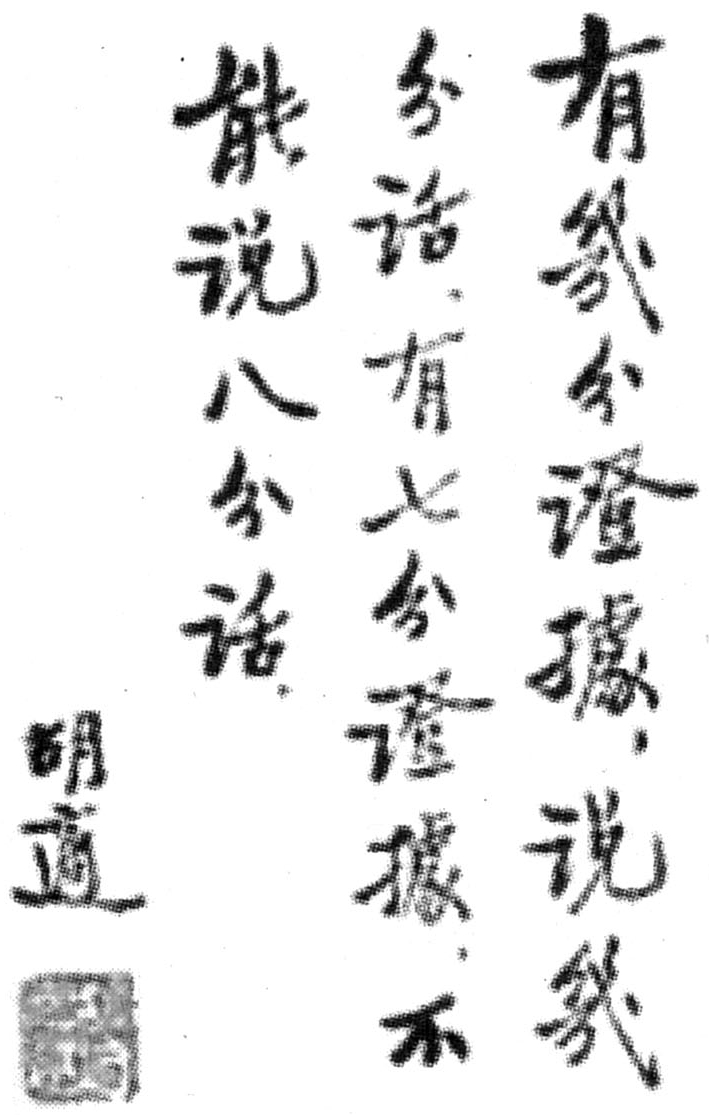 有幾分證據，說幾
分話．有七分證據，不
能說八分話．
胡適